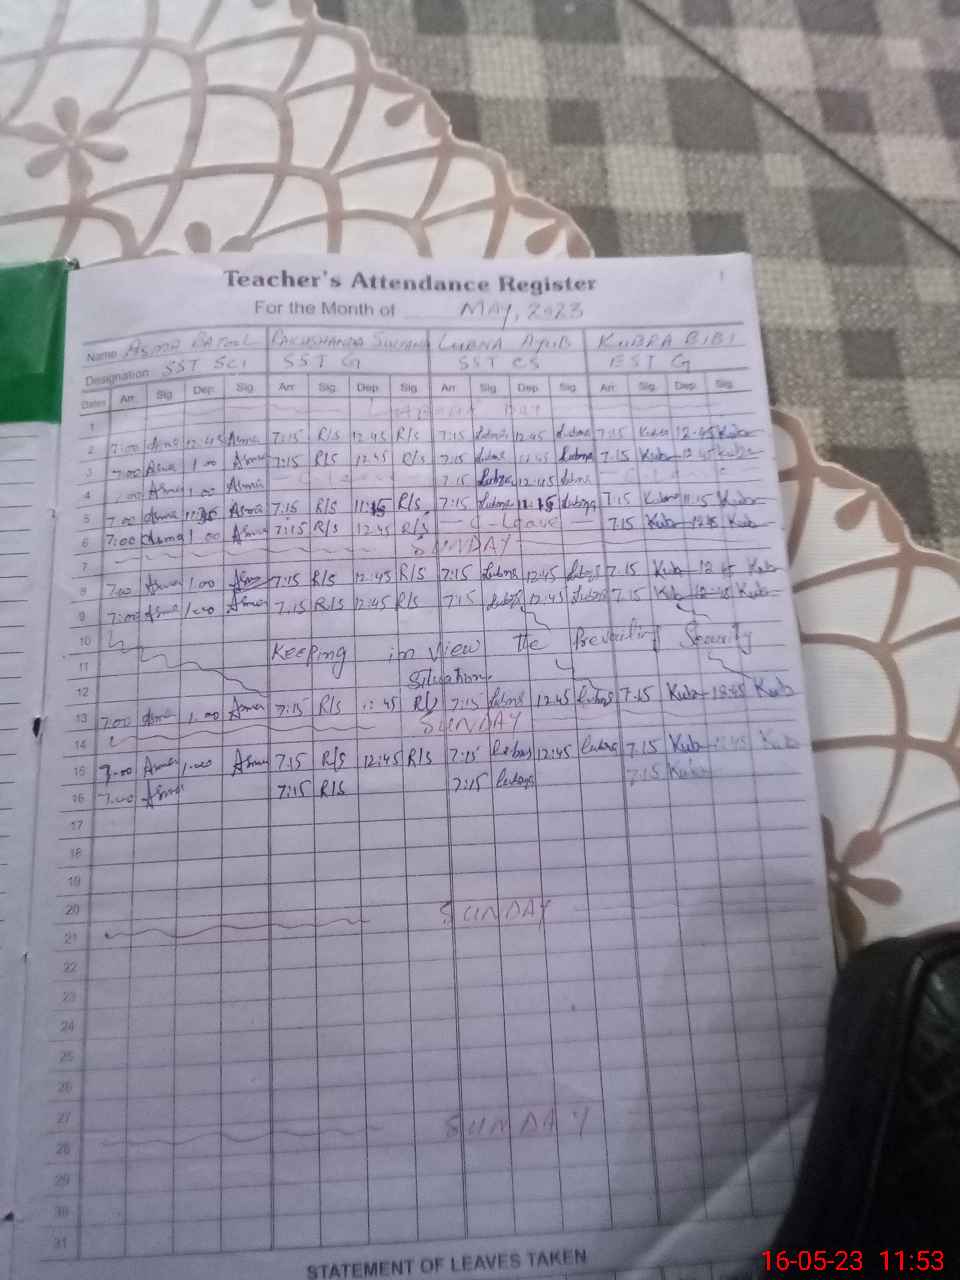 1
Teacher's Attendance Register
For the Month of MAY, 2023
Name ASMA BATOOL RAKHSHANDA SULTANA LUBNA AYUB KUBRA BIBI
Designation SST SCI SST G SST CS EST G
Dates Arr. Sig. Dep. Sig. Arr. Sig. Dep. Sig. Arr. Sig. Dep. Sig. Arr. Sig. Dep. Sig.
1 DAY
2 7:00 Asma 12:45 Asma 7:15 R/S 12:45 R/S 7:15 Lubna 12:45 Lubna 7:15 Kubra 12:45 Kubra
3 7:00 Asma 1:00 Asma 7:15 R/S 12:45 R/S 7:15 Lubna 12:45 Lubna 7:15 Kub 12:45 Kub
4 7:00 Asma 1:00 Asma 7:15 Lubna 12:45 Lubna
5 7:00 Asma Asma 7:15 R/S 11:15 R/S 7:15 Lubna 11:15 Lubna 7:15 Kubra 11:15 Kub
6 7:00 Asma 1:00 Asma 7:15 R/S 12:45 R/S C-Leave 7:15 Kub Kub
7 SUNDAY
8 7:00 Asma 1:00 Asma 7:15 R/S 12:45 R/S 7:15 Lubna 12:45 Lubna 7:15 Kub 12:45 Kub
9 7:00 Asma 1:00 Asma 7:15 R/S 12:45 R/S 7:15 Lubna 12:45 Lubna 7:15 Kub 12:45 Kub
10
11 Keeping in view the Prevailing Security
12 Situation
13 7:00 Asma 1:00 Asma 7:15 R/S 12:45 R/S 7:15 Lubna 12:45 Lubna 7:15 Kub 12:45 Kub
14 SUNDAY
15 7:00 Asma 1:00 Asma 7:15 R/S 12:45 R/S 7:15 Lubna 12:45 Lubna 7:15 Kub 12:45 Kub
16 7:00 Asma 7:15 R/S 7:15 Lubna 7:15 Kub
17
18
19
20
21 SUNDAY
22
23
24
25
26
27
28 SUNDAY
29
30
31
STATEMENT OF LEAVES TAKEN
16-05-23 11:53